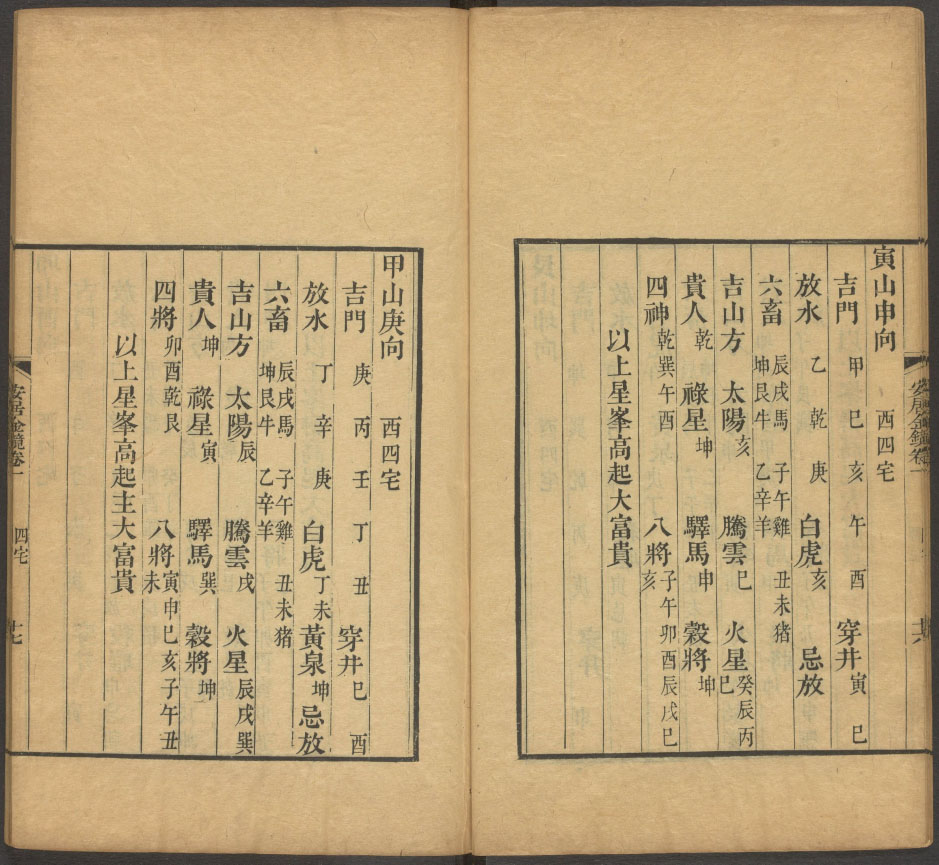 寅山申向 西四宅
吉門 甲 巳 亥 午 酉 穿井 寅 巳
放水 乙 乾 庚 白虎亥 忌放
六畜 辰戌馬 子午雞 丑未猪 坤艮牛 乙辛羊
吉山方 太陽亥 騰雲巳 火星癸辰丙巳
貴人乾 祿星坤 驛馬申 穀將坤
四神乾巽午酉 八將子午卯酉辰戌巳亥
以上星峯高起大富貴
安居金鏡卷一
甲山庚向 西四宅
吉門 庚 丙 壬 丁 丑 穿井 巳 酉
放水 丁 辛 庚 白虎丁未 黃泉坤 忌放
六畜 辰戌馬 子午雞 丑未猪 坤艮牛 乙辛羊
吉山方 太陽辰 騰雲戌 火星辰戌巽
貴人坤 祿星寅 驛馬巽 穀將坤
四將卯酉乾艮 八將寅申巳亥子午丑未
以上星峯高起主大富貴
安居金鏡卷一 四宅 十七